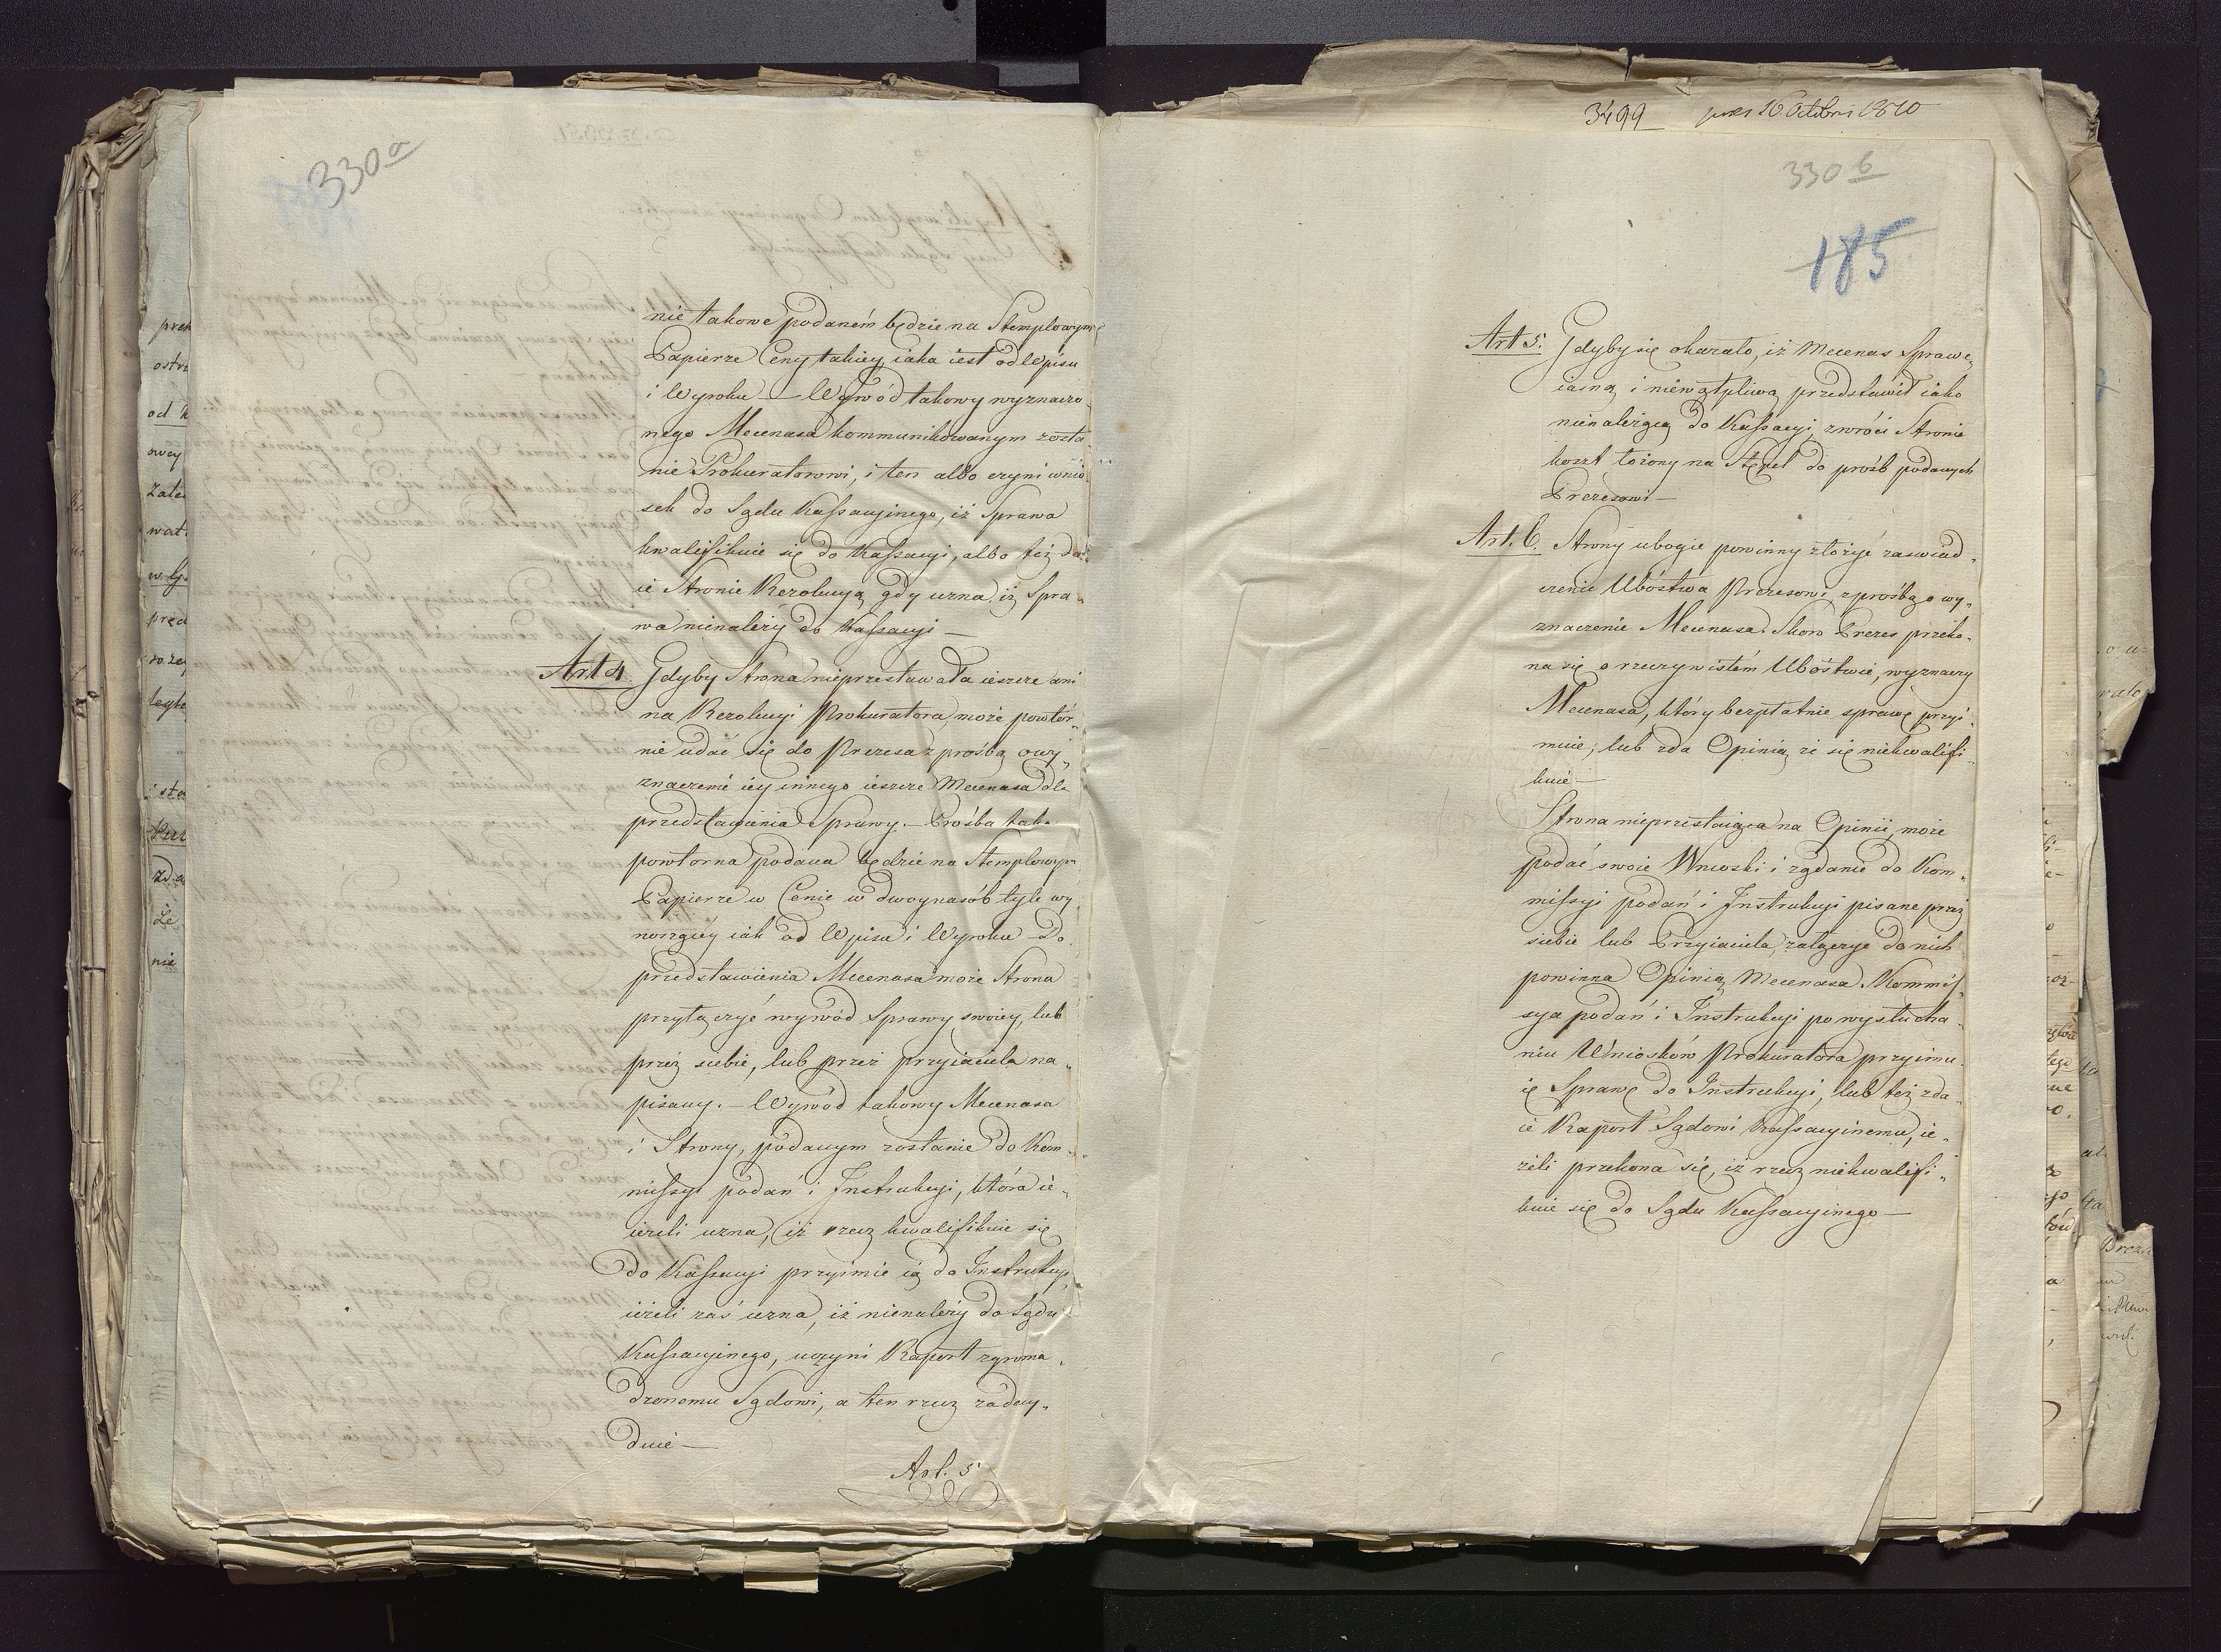 330 a
nie takowe podaném będzie na Stemplowym
Papierze Ceny takiey iaka iest od Wpisu
i Wyroku — Wywód takowy wyznaczo
nego Mecenasa kommunikowanym zosta„
nie Prokuratorowi, i ten albo czyni wnio„
sek do Sądu Kassacyinego, iż Sprawa
kwalifikuie się do Kassacyi, albo też da„
ie Stronie Rezolucyą gdy uzna iż Spra„
wa nienależy do Kassacyi —
Art 4. Gdyby Strona nieprzestawała ieszcze ani
na Rezolucyi Prokuratora, może powtór„
nie udać się do Prezesa z prośbą o wy„
znaczenie iey innego ieszcze Mecenasa dla
przedstawienia Sprawy. — Prośba taka
powtorna podana będzie na Stemplowym
Papierze w Cenie w dwoynasób tyle wy
noszącey iak od Wpisu i Wyroku Do
przedstawienia Mecenasa może Strona
przyłączyć wywód Sprawy swoiey, lub
przez siebie, lub przez przyiaciela na„
pisany. — Wywód takowy Mecenasa
i Strony, podanym zostanie do Kom„
missyi podań i Instrukcyi, która ie„
ieżeli uzna, iż rzecz kwalifikuie się
do Kassacyi przyimie ią do Instrukcyi,
ieżeli zaś uzna, iż nienależy do Sądu
Kassacyinego, uczyni Raport zgroma„
dzonemu Sądowi, a ten rzecz zadecy„
duie —
Art. 5.
3499 præs 16 Octobris 1810
330 b
185
Art 5. Gdyby się okazało, iż Mecenas Sprawę„
iasną i niewątpliwą przedstawił iako
nienależącą do Kassacyi, zwróci Stronie
koszt łożony na Stępel do prośb podanych
Prezesowi —
Art. 6. Strony ubogie powinny złożyć zaswiad„
czenie Ubóstwa Prezesowi z prośbą o wy„
znaczenie Mecenasa. Skoro Prezes przeko„
na się o rzeczywistém Ubóstwie, wyznaczy
Mecenasa, który bezpłatnie sprawę przyi„
muie, lub zda Opinią że się niekwalifi„
kuie —
Strona nieprzestaiąca na Opinii, może
podać swoie Wnioski i żądanie do Kom„
missyi podań i Instrukcyi pisane przez
siebie lub Przyiaciela, załączyć do nich
powinna Opinią Mecenasa. Kommis„
sya podań i Instrukcyi po wysłucha„
niu Wniosków Prokuratora przyimu„
ię Sprawę do Instrukcyi, lub też zda„
ie Raport Sądowi Kassacyinemu, ie„
żeli przekona się, iż rzecz niekwalifi„
kuie się do Sądu Kassacyinego —